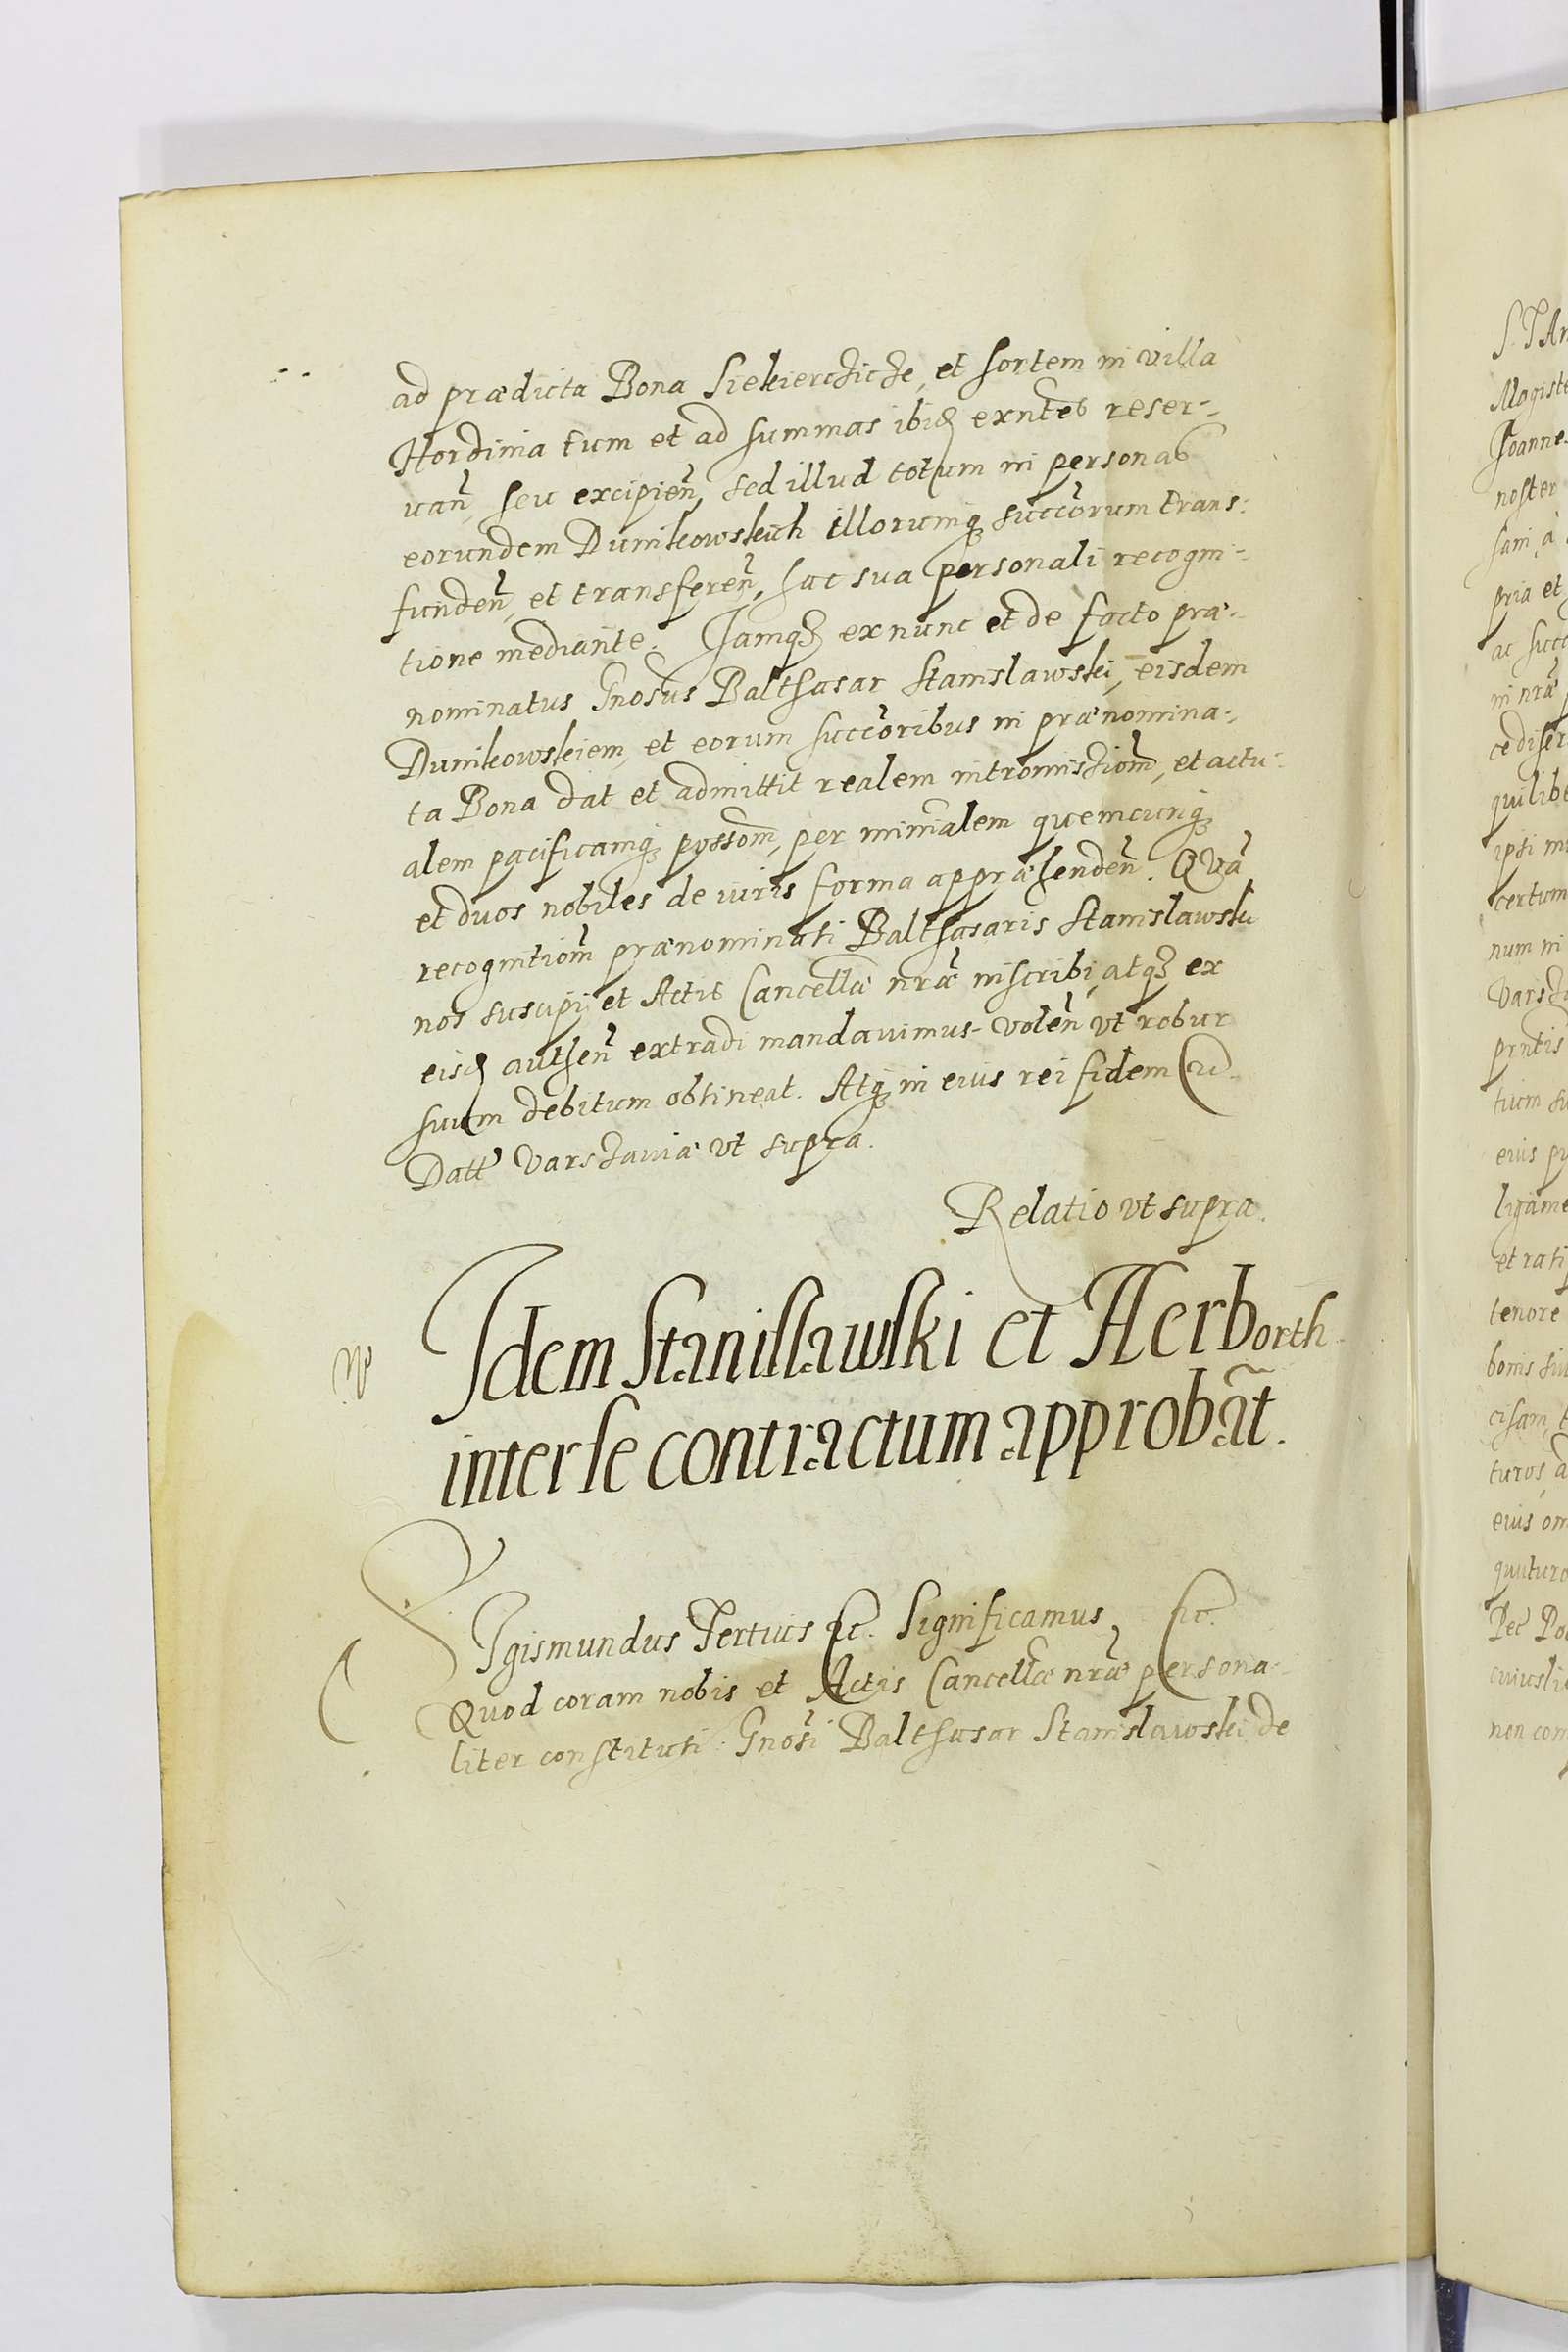 ad prædicta Bona Siekierczicze, et sortem in villa
Hordinia tum et ad summas ibid exntes reser-
uan̄, seu excipien̄, sed illud totum in personas
eorundem Dunikowskich illorumq̃ succorum trans:
funden̄, et transferen̄, hac sua personali recogni-
tione mediante. Jamq̃ ex nunc et de facto præ-
nominatus Gnosus Balthasar Stanislawski, eisdem
Dunikowskiem, et eorum succoribus in prænomina-
ta Bona dat et admittit realem intromissiom̄, et actu-
alem pacificamq̃ possom̄, per minialem quemcunq̃
et duos nobiles de iuris forma appræhenden̄. Qvā
recognitiom̄ prænominati Balthasaris Stanislawsku
nos suscipi et Actis Cancellæ nræ inscribi, atq̃ ex
eisd authen̄ extradi mandauimus. volen̄ vt robur
suum debitum obtineat. Atq̃ in eius rei fidem &c.
Datt Varszauiæ vt supra.
Relatio vt supra.
Idem Stanislawski et Herborth
inter se contractum approbāt.
SIgismundus Tertius &c. Significamus &c.
Quod coram nobis et Actis Cancellæ nræ persona-
liter constituti Gnosi Balthasar Stanislawski de
S. T Ar
Magist
Joanne
noster
pria et
ac succ
in nræ
quilib
ipsi m
certum
num in
Varsz
prntis
tium su
eius p
ligame
et rati
tenore
bonis su
turos, a
eius om
cuiusli
non com